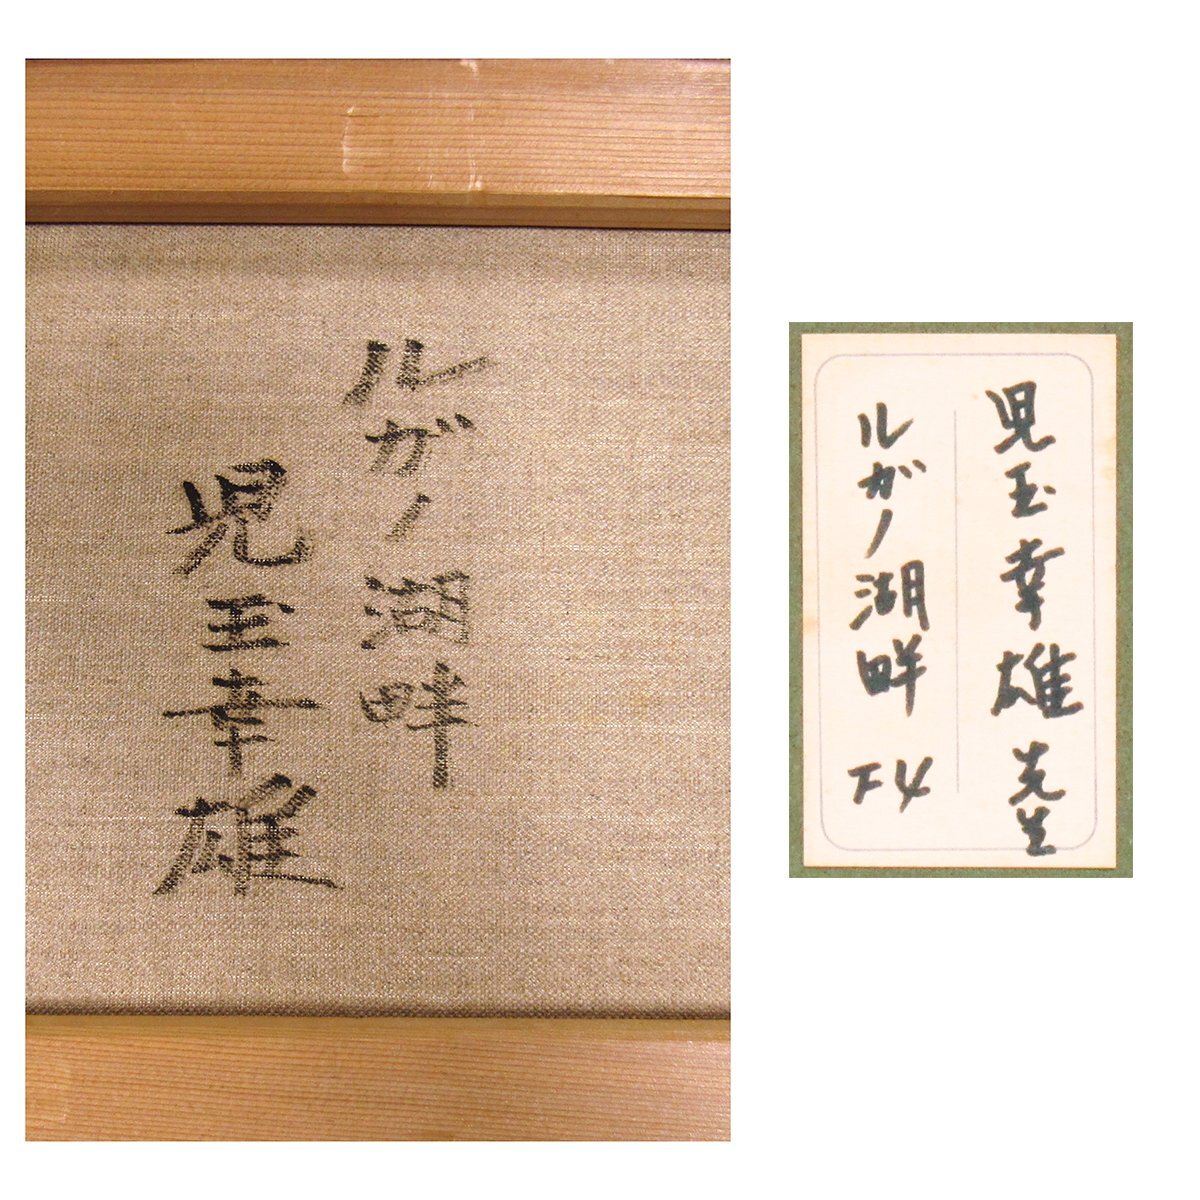 ルガノ湖畔
児玉幸雄
児玉幸雄先生
ルガノ湖畔 F4